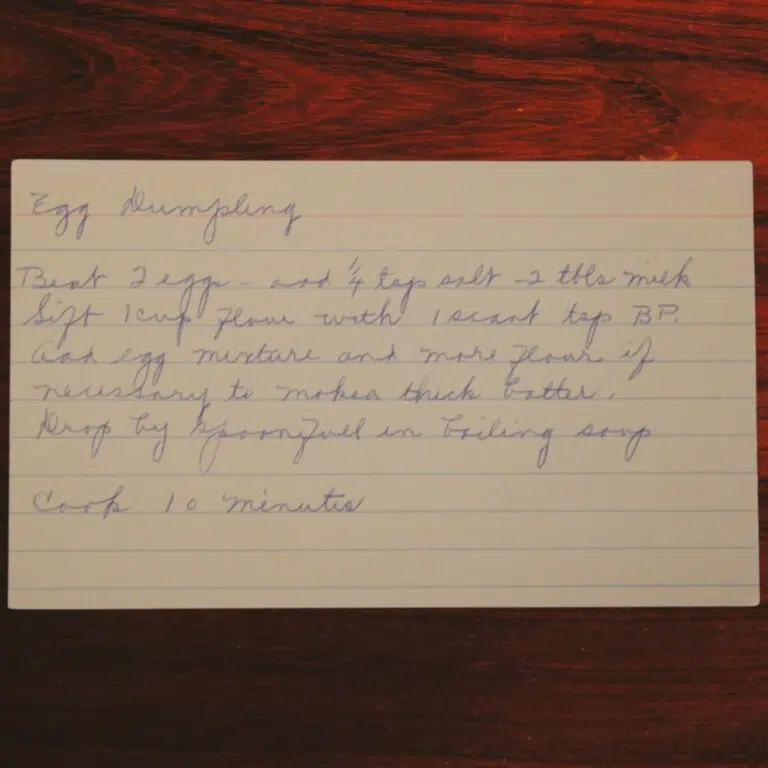 Egg Dumpling
Beat 2 eggs - add ¼ tsp salt - 2 tbls milk
Sift 1 cup flour with 1 scant tsp BP.
Add egg mixture and more flour if
necessary to make a thick batter.
Drop by spoonfull in boiling soup
Cook 10 minutes